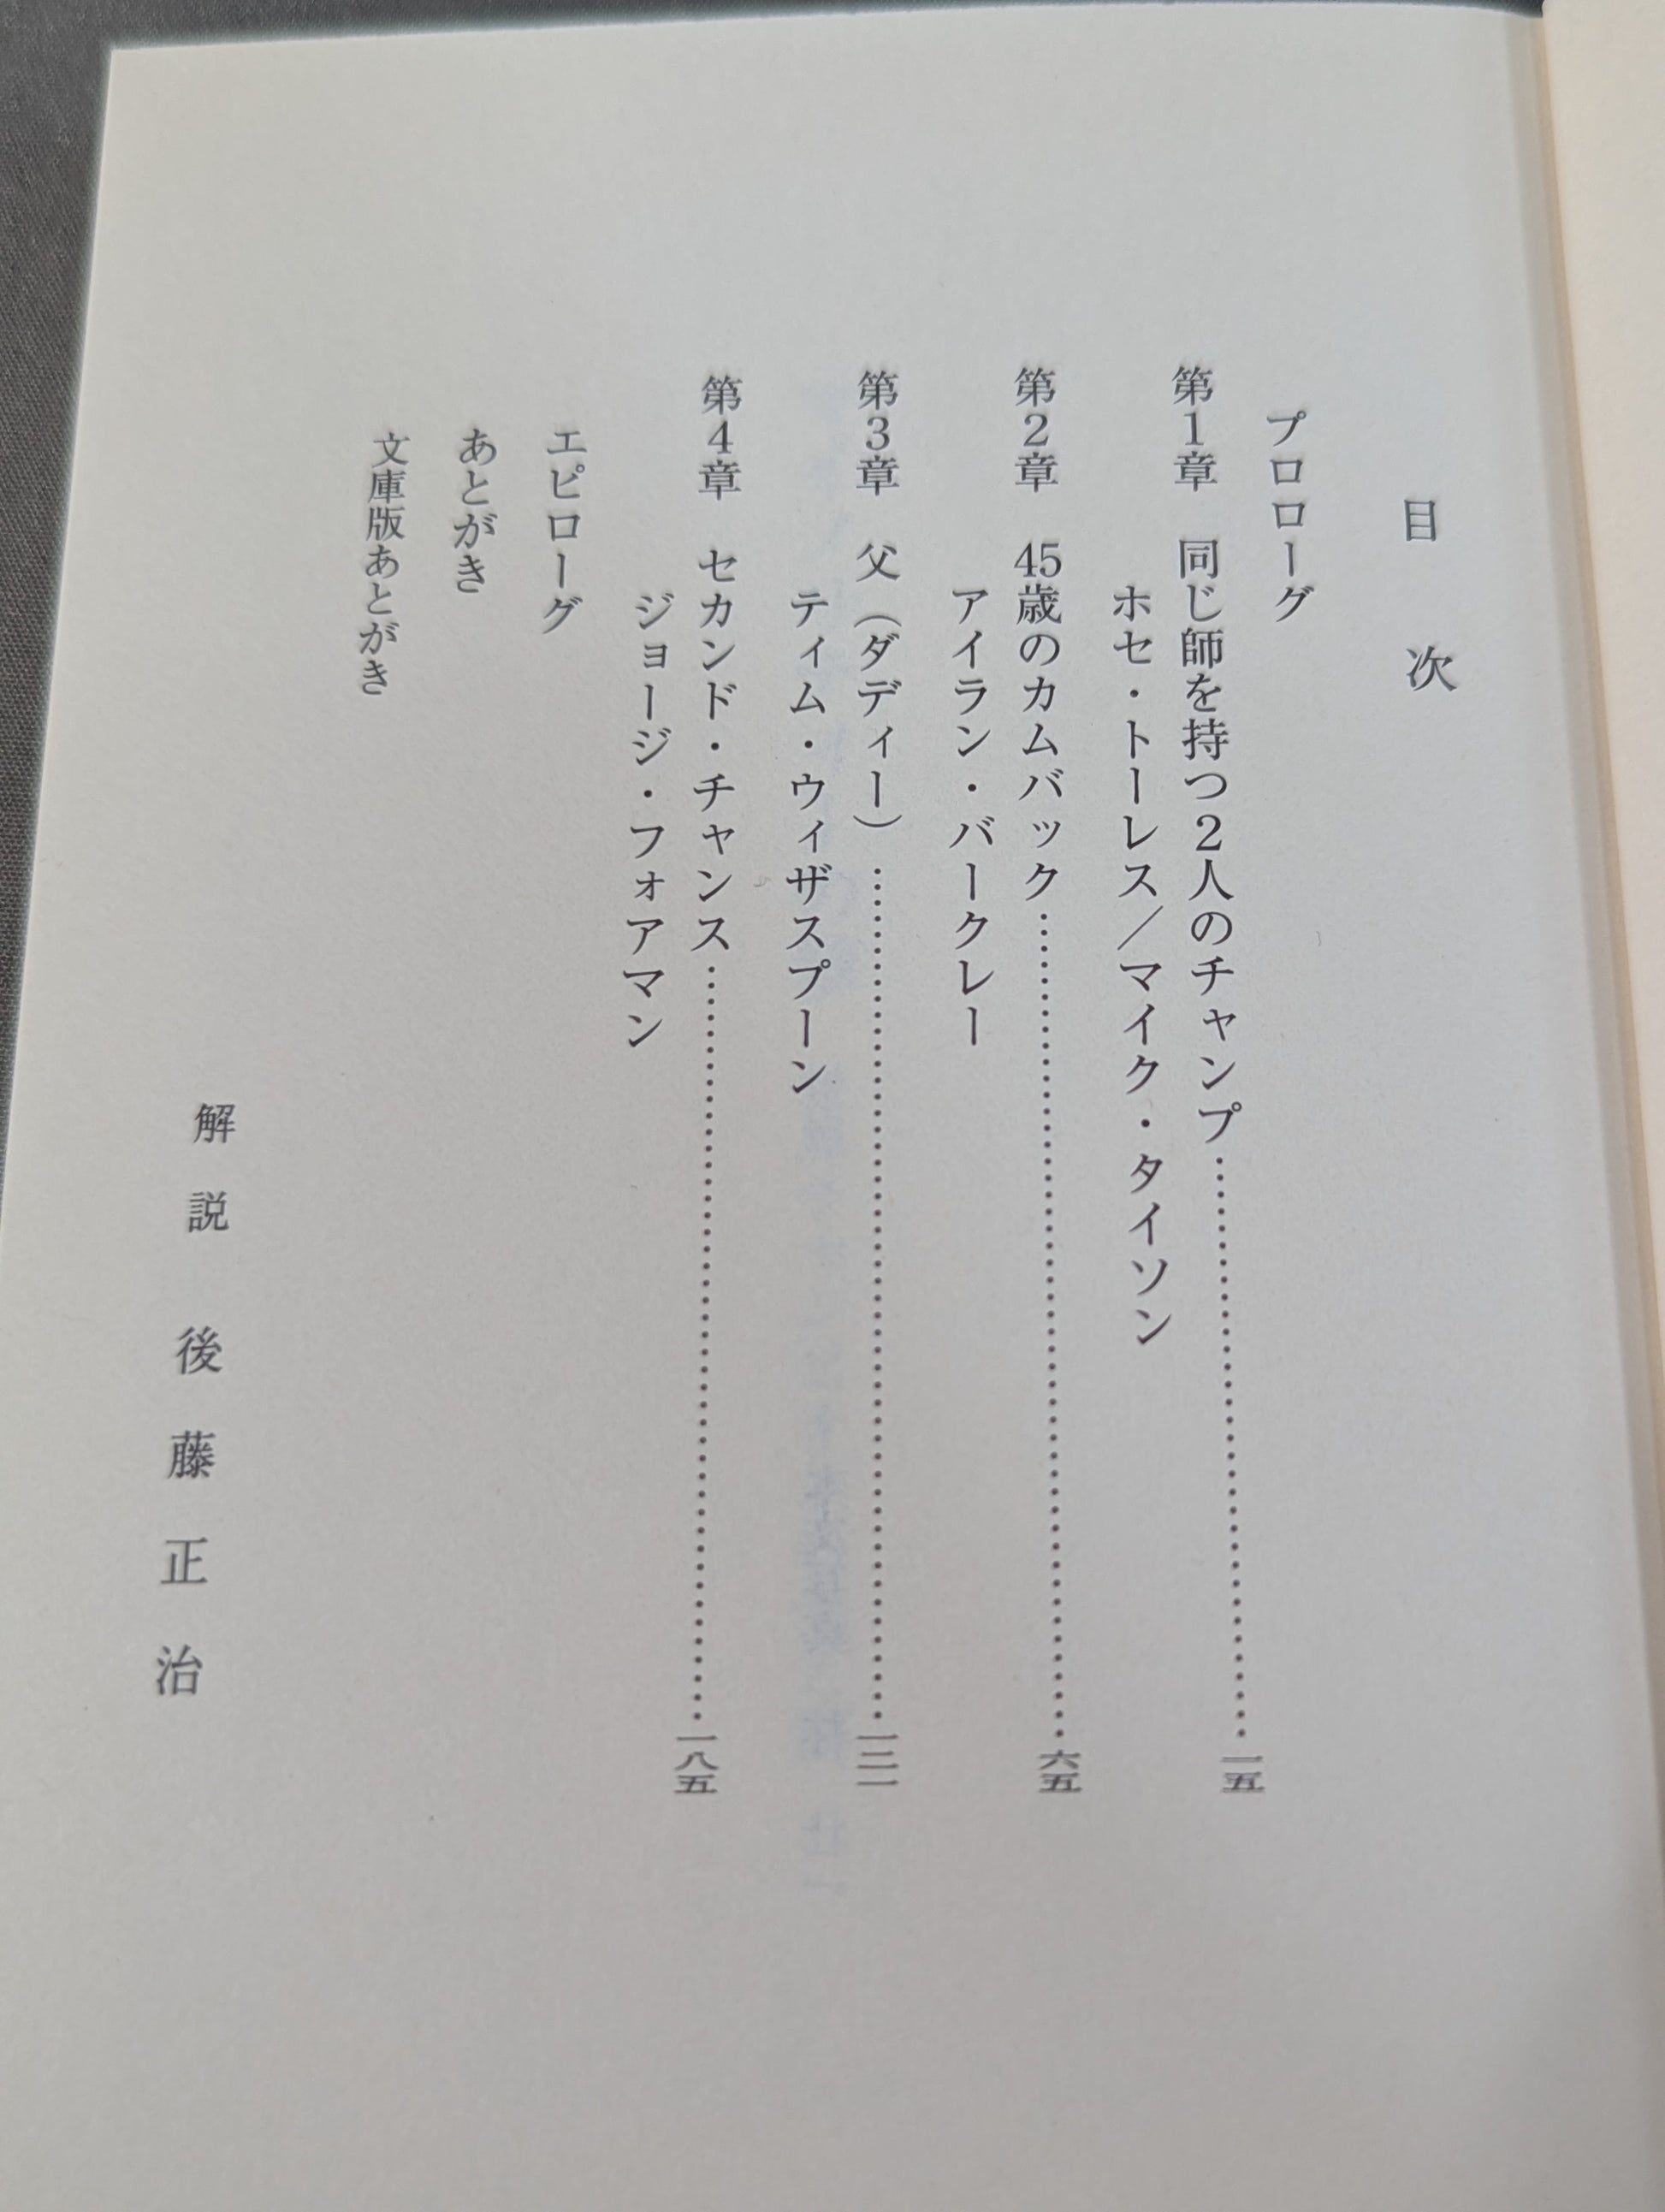 目次
プロローグ
第1章　同じ師を持つ2人のチャンプ……………………一五
ホセ・トーレス／マイク・タイソン
第2章　45歳のカムバック……………………六五
アイラン・バークレー
第3章　父（ダディー）……………………一二一
ティム・ウィザスプーン
第4章　セカンド・チャンス……………………一八五
ジョージ・フォアマン
エピローグ
あとがき
文庫版あとがき
解説　後藤正治